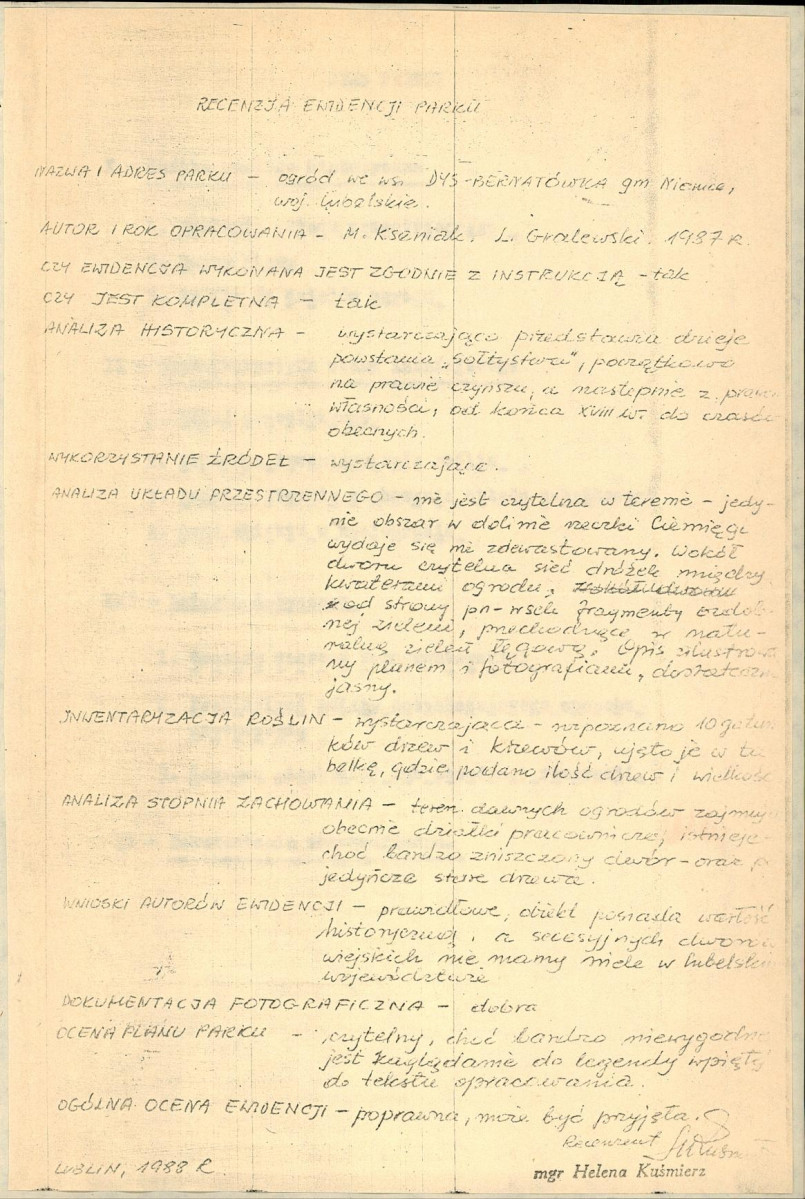 RECENZJA EWIDENCJI PARKU
NAZWA I ADRES PARKU – ogród we wsi DYS-BERNATÓWKA gm Niemce,
woj. lubelskie.
AUTOR I ROK OPRACOWANIA – M. Kseniak. L. Gralewski. 1987 R.
CZY EWIDENCJA WYKONANA JEST ZGODNIE Z INSTRUKCJĄ – tak
CZY JEST KOMPLETNA – tak
ANALIZA HISTORYCZNA – wystarczająco przedstawia dzieje
powstania „sołtystwa", początkowo
na prawie czynszu, a następnie z prawa
własności, od końca XVIII w. do czasów
obecnych.
WYKORZYSTANIE ŹRÓDEŁ – wystarczające.
ANALIZA UKŁADU PRZESTRZENNEGO – nie jest czytelna w terenie – jedy-
nie obszar w dolinie rzeczki Ciemięgi
wydaje się nie zdewastowany. Wokół
dworu czytelna sieć dróżek między
kwaterami ogrodu, wokół dworu
od strony pn-wsch fragmenty ozdob-
nej zieleni, przechodzącej w natu-
ralną zieleń łęgową. Opis zilustrowa
ny planem i fotografiami, dostatecznie
jasny.
INWENTARYZACJA ROŚLIN – wystarczająca – rozpoznano 10 gatun
ków drzew i krzewów, ujęto je w ta
belkę, gdzie podano ilość drzew i wielkość
ANALIZA STOPNIA ZACHOWANIA – teren dawnych ogrodów zajmują
obecnie działki pracownicze, istnieje –
choć bardzo zniszczony dwór – oraz po
jedyńcze stare drzewa.
WNIOSKI AUTORÓW EWIDENCJI – prawidłowe, obiekt posiada wartość
historyczną, a secesyjnych dworów
wiejskich nie mamy wiele w lubelskim
województwie
DOKUMENTACJA FOTOGRAFICZNA – dobra
OCENA PLANU PARKU – czytelny, choć bardzo niewygodne
jest zaglądanie do legendy wpiętej
do tekstu opracowania.
OGÓLNA OCENA EWIDENCJI – poprawna, może być przyjęta.
Recenzent
LUBLIN, 1988 R.
mgr Helena Kuśmierz